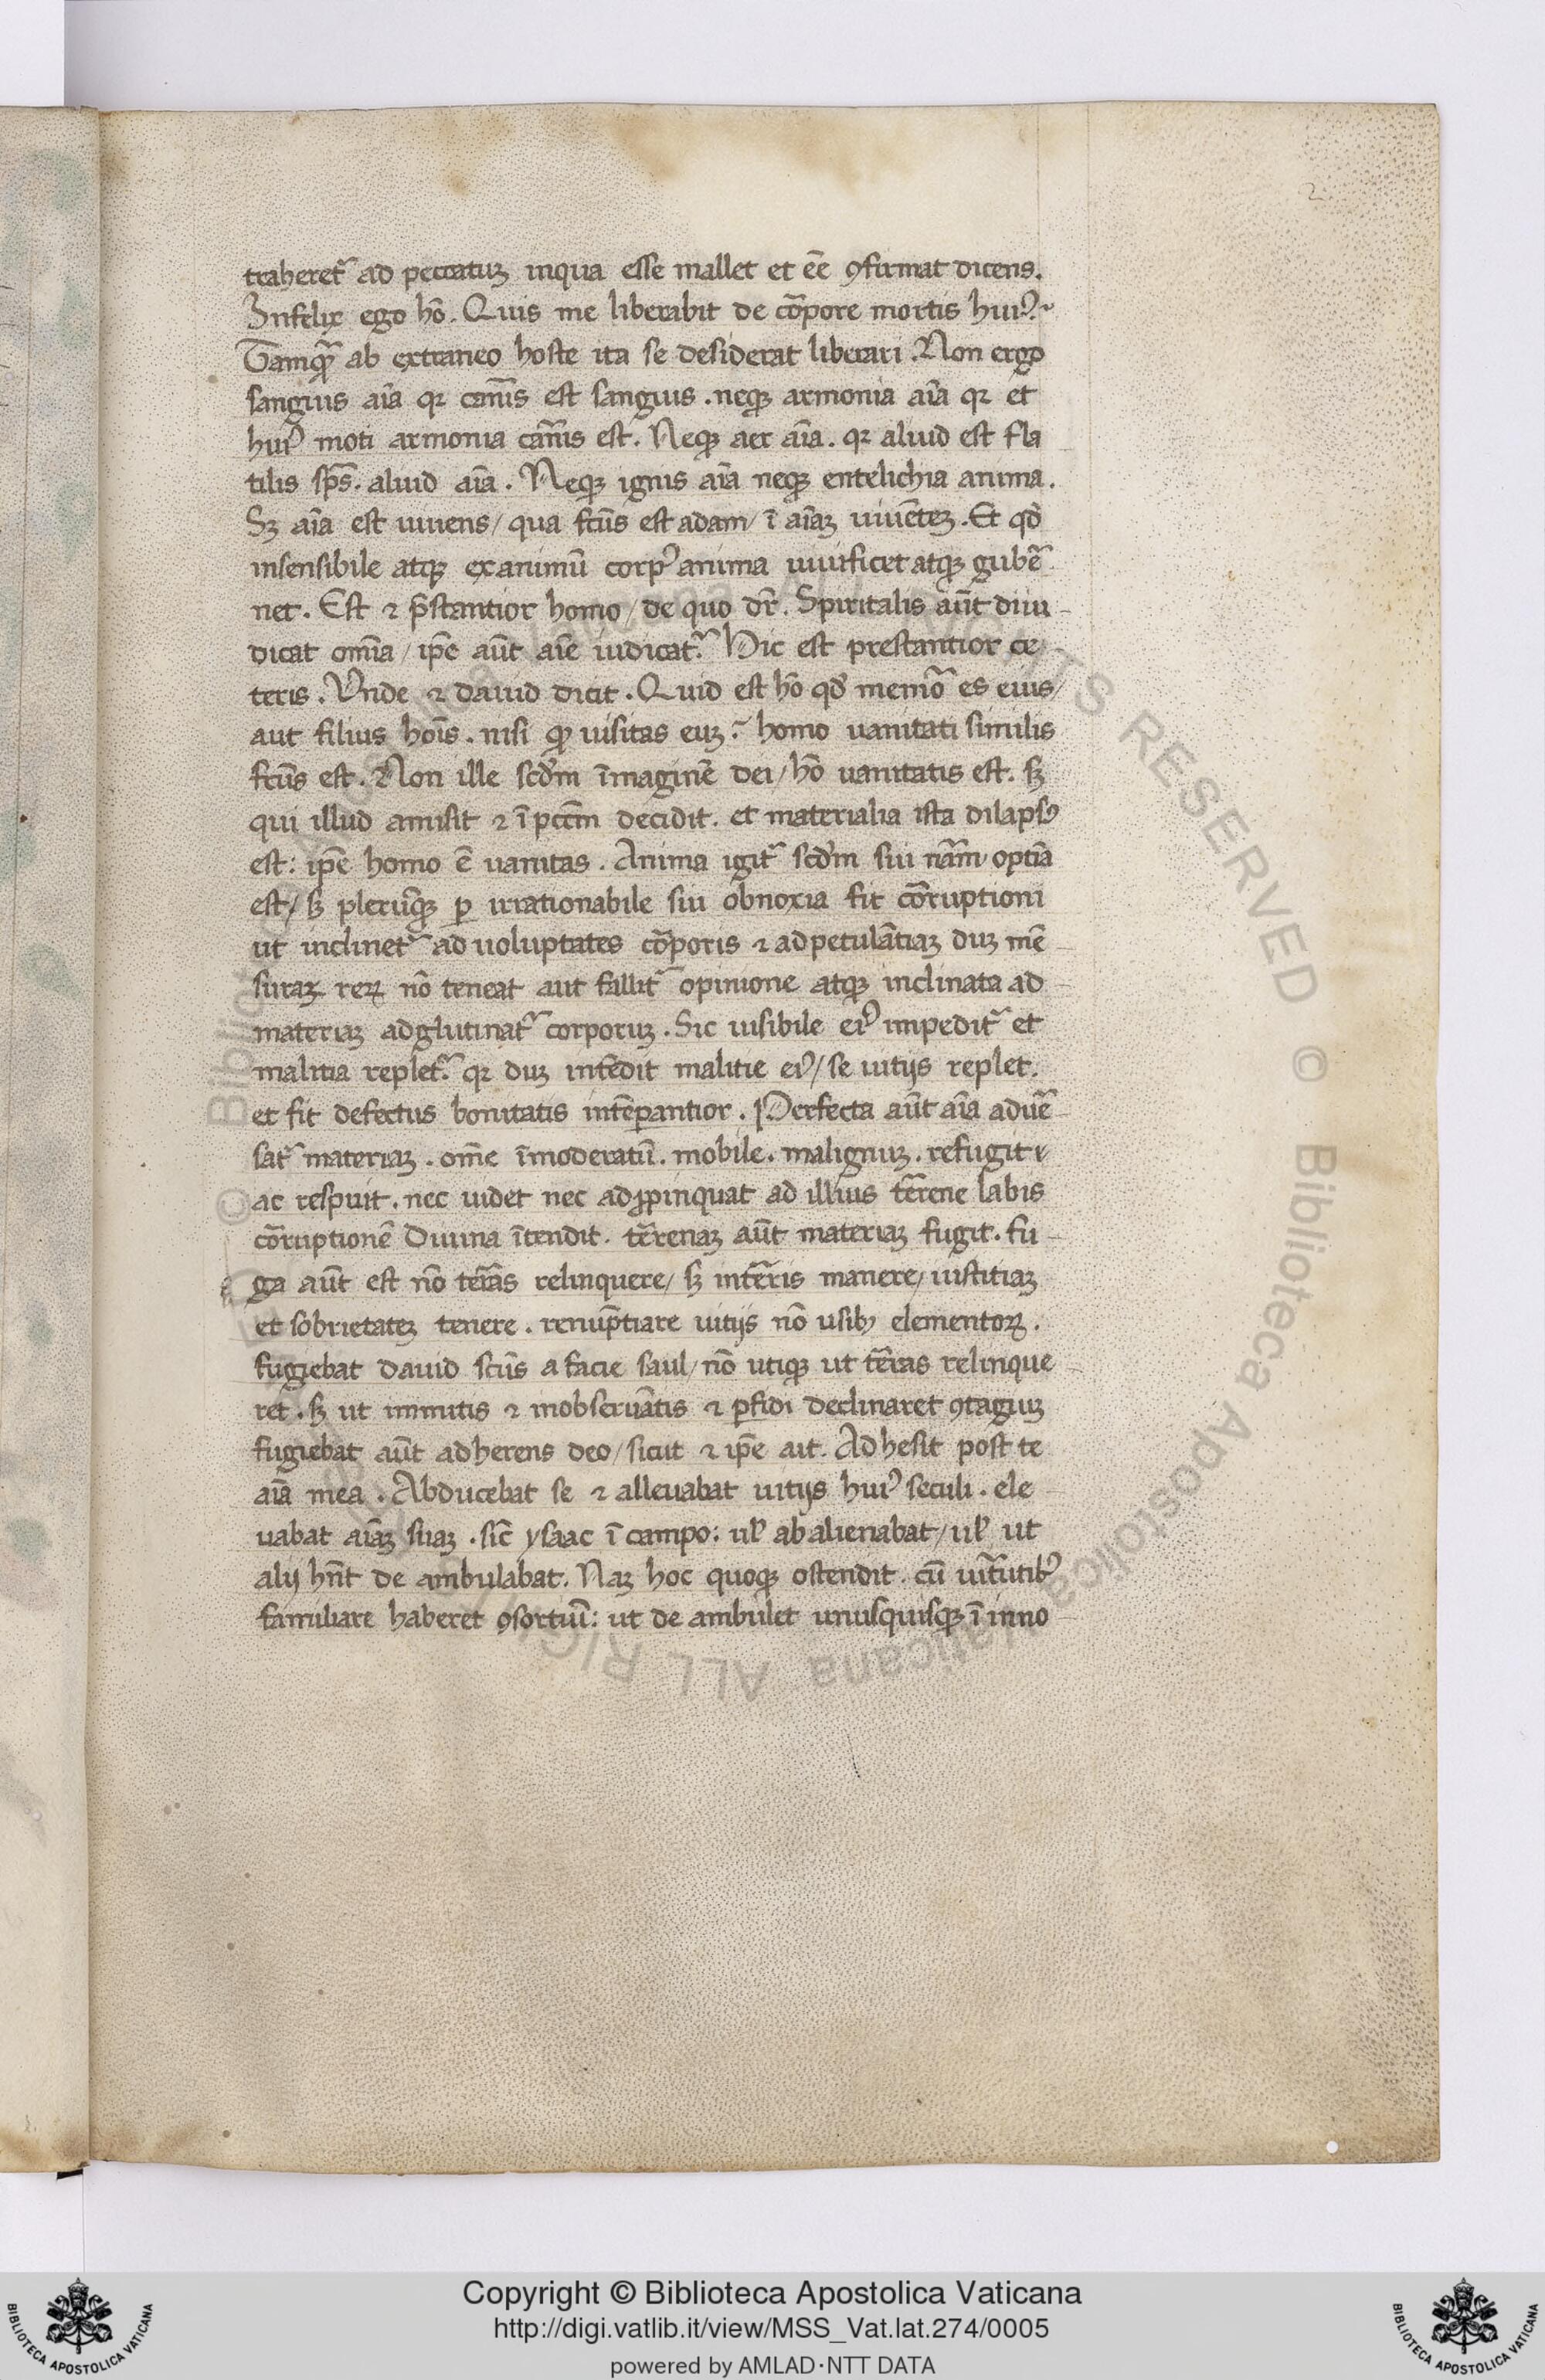 2
traheret᷑ ad peccatuꝫ inqua esse mallet et ēe ꝯfirmat dicens.
Infelix ego hō. Quis me liberabit de cor̄pore mortis huiꝰ?
Tamqᷓ ab extraneo hoste ita se desiderat liberari. Non ergo
sanguis aīa qꝛ carnīs est sanguis. neqꝫ armonia aīa qꝛ et
huiꝰ moti armonia carnīs est. Neqꝫ aer aīa. qꝛ aliud est fla
tilis sp̄s. aliud aīa. Neqꝫ ignis aīa neqꝫ entelichia anima.
Sꝫ aīa est uiuens/ qua fcūs est adam/ ī aīaꝫ uiuēteꝫ. Et qđ
insensibile atqꝫ exanimū corpꝰ anima uiuificet atqꝫ gubē
net. Est ⁊ p̄stantior homo/ de quo dr̄. Spiritalis aūt diiu
dicat omīa/ ip̄e aūt aīe iudicat᷑. Hic est prestantior ce
teris. Vnde ⁊ dauid dicit. Quid est hō qđ memor̄ es eius/
aut filius hoīs. nisi qꝫ uisitas euꝫ? homo uanitati similis
fcūs est. Non ille scd̄m īmaginē dei/ hō uanitatis est. sꝫ
qui illud amisit ⁊ ī pccm̄ decidit. et materialia ista dilapsꝰ
est: ip̄e homo ē uanitas. Anima igit᷑ scd̄m sui nām optīa
est/ sꝫ plerūqꝫ ꝑ irrationabile sui obnoxia fit cor̄ruptioni
ut inclinet᷑ ad uoluptates cor̄poris ⁊ ad petulātiaꝫ duꝫ mē
suraꝫ reꝝ nō teneat aut fallit᷑ opinione atqꝫ inclinata ad
materiaꝫ adglutinat᷑ corporuꝫ. Sic uisibile eiꝰ impedit᷑ et
malitia replet᷑. qꝛ duꝫ intēdit malitie eiꝰ/ se uitijs replet.
et fit defectus bonitatis intēperantior. Perfecta aūt aīa aduē
sat᷑ materiaꝫ. om̄e īmoderatū. mobile. malignuꝫ. refugit
ac respuit. nec uidet nec adꝓpinquat ad illius ter̄rene labis
cor̄ruptionē Diuina ītendit. ter̄renaꝫ aūt materiaꝫ fugit. fu
ga aūt est nō terr̄as relinquere/ sꝫ inter̄ris manere/ iustitiaꝫ
et sobrietateꝫ tenere. renūptiare uitijs nō usibꝫ elementoꝝ.
fugiebat dauid scūs a facie saul/ nō utiqꝫ ut ter̄ras relinque
ret. sꝫ ut immitis ⁊ inobseruātis ⁊ ꝑfidi declinaret ꝯtagiuꝫ
fugiebat aūt adherens deo/ sicut ⁊ ip̄e ait. Adhesit post te
aīa mea. Abducebat se ⁊ alleuabat uitijs huiꝰ seculi. ele
uabat aīaꝫ suaꝫ. sic̄ ysaac ī campo: ul̓ abalienabat/ ul̓ ut
alij hn̄t de ambulabat. Naꝫ hoc quoqꝫ ostendit. cū uir̄tutibꝰ
familiare haberet ꝯsortiuī: ut de ambulet unusquisqꝫ ī inno
Copyright © Biblioteca Apostolica Vaticana
http://digi.vatlib.it/view/MSS_Vat.lat.274/0005
powered by AMLAD·NTT DATA
BIBLIOTECA APOSTOLICA VATICANA
BIBLIOTECA APOSTOLICA VATICANA
© Biblioteca Apostolica Vaticana ALL RIGHTS RESERVED